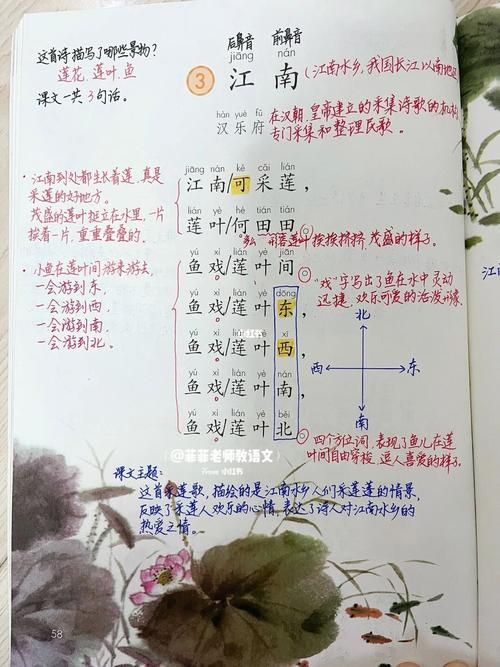 这首诗描写了哪些景物?
莲花、莲叶、鱼
课文一共3句话。
后鼻音 前鼻音
jiāng nán
3 江南
(江南水乡,我国长江以南地区
hàn yuè fǔ
汉乐府
在汉朝,皇帝建立的采集诗歌的机构
专门采集和整理民歌。
江南到处都生长着莲,真是
采莲的好地方。
茂盛的莲叶挺立在水里,一片
挨着一片,重重叠叠的。
jiāng nán kě cǎi lián
江南/可采莲,
lián yè hé tián tián
莲叶/何田田
多么 形容莲叶挨挨挤挤、茂盛的样子。
小鱼在莲叶间游来游去,
一会游到东,
一会游到西,
一会游到南,
一会游到北。
yú xì lián yè jiān
鱼戏/莲叶间
yú xì lián yè dōng
鱼戏/莲叶东,
yú xì lián yè xī
鱼戏/莲叶西,
yú xì lián yè nán
鱼戏/莲叶南,
yú xì lián yè běi
鱼戏/莲叶北
"戏"字写出了鱼在水中灵动
迅捷、欢乐可爱的活泼形象。
北
西 东
南
四个方位词,表现了鱼儿在莲
叶间自由穿梭,逗人喜爱的样子。
小红书
@菲菲老师教语文
From 小红书
课文主题:
这首采莲歌,描绘的是江南水乡人们采莲蓬的情景,
反映了采莲人欢乐的心情,表达了诗人对江南水乡的
热爱之情。
58